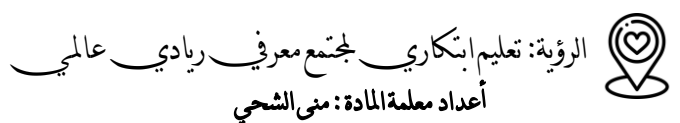 الرؤية: تعليم ابتكاري لمجتمع معرفي ريادي عالمي
أعداد معلمة المادة : منى الشحي